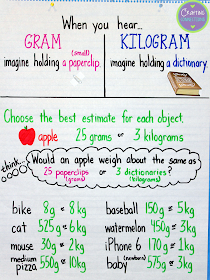 Crafting Connections
When you hear...
GRAM
KILOGRAM
(small)
imagine holding a paperclip.
imagine holding a dictionary.
Choose the best estimate for each object.
apple 25 grams or 3 kilograms
think...
Would an apple weigh about the same as
25 paperclips or 3 dictionaries?
(grams) (kilograms)
bike 8g or 8kg
baseball 150g or 5kg
cat 525g or 6kg
watermelon 450g or 3kg
mouse 30g or 2kg
iPhone 6 170g or 1kg
medium pizza 550g or 10kg
(newborn)
baby 575g or 3kg